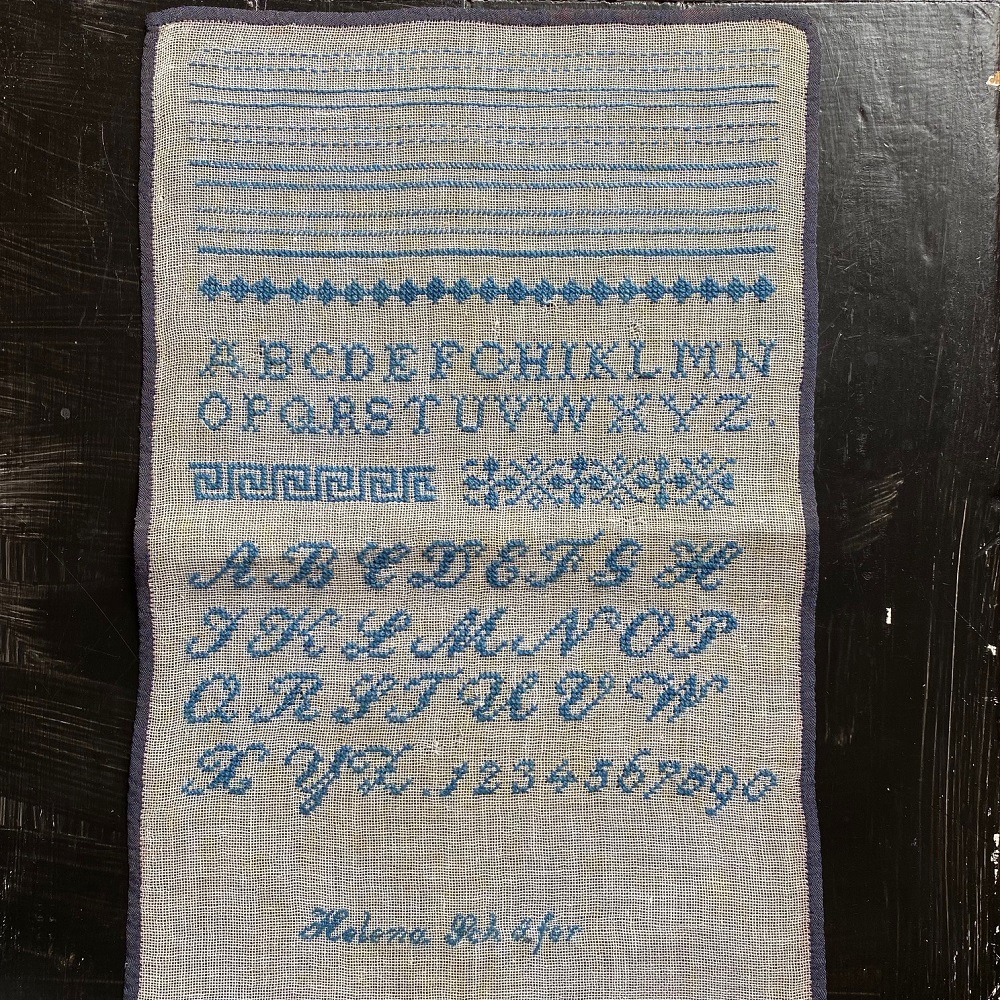 ABCDEFGHIKLMN
OPQRSTUVWXYZ.
ABCDEFGH
IKLMNOP
QRSTUVW
XYZ.1234567890
Helena Schäfer